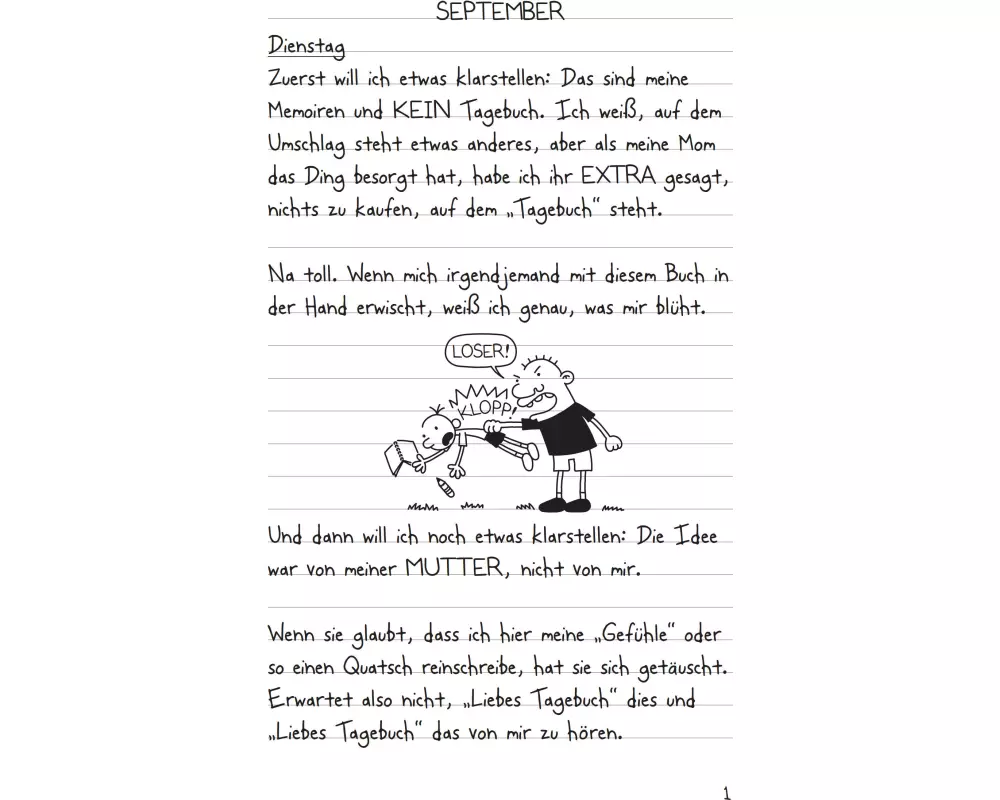 SEPTEMBER
Dienstag
Zuerst will ich etwas klarstellen: Das sind meine
Memoiren und KEIN Tagebuch. Ich weiß, auf dem
Umschlag steht etwas anderes, aber als meine Mom
das Ding besorgt hat, habe ich ihr EXTRA gesagt,
nichts zu kaufen, auf dem „Tagebuch“ steht.
Na toll. Wenn mich irgendjemand mit diesem Buch in
der Hand erwischt, weiß ich genau, was mir blüht.
LOSER!
KLOPP!
Und dann will ich noch etwas klarstellen: Die Idee
war von meiner MUTTER, nicht von mir.
Wenn sie glaubt, dass ich hier meine „Gefühle“ oder
so einen Quatsch reinschreibe, hat sie sich getäuscht.
Erwartet also nicht, „Liebes Tagebuch“ dies und
„Liebes Tagebuch“ das von mir zu hören.
1